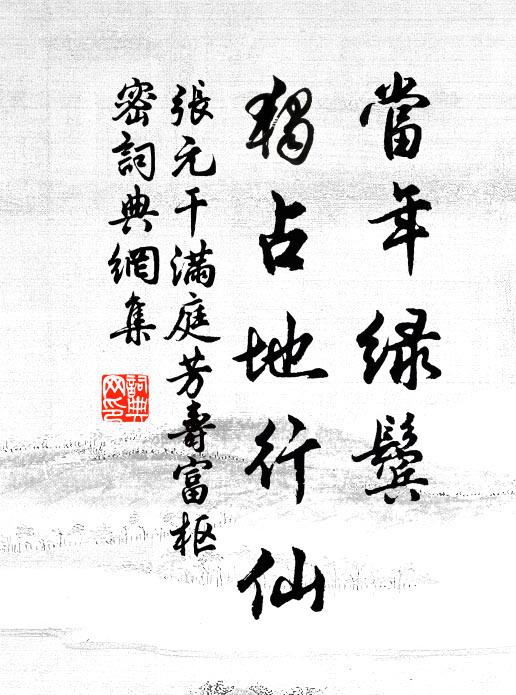 當年绿鬓
獨占地行仙
張元干满庭芳壽富枢
密詞典網集
詞典
网印